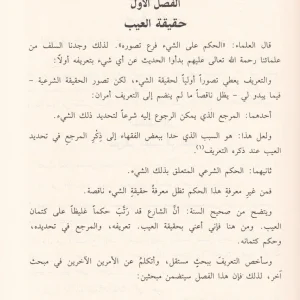 الفصل الأول
حقيقة العيب
قال العلماء: «الحكم على الشيء فرع تصوره». لذلك وجدنا السلف من
علمائنا رحمة الله تعالى عليهم بدأوا الحديث عن أي شيء بتعريفه أولاً:
والتعريف يعطي تصوراً أولياً لحقيقة الشيء، لكن تصور الحقيقة الشرعية -
فيما يبدو لي - يظل ناقصاً ما لم ينضم إلى التعريف أمران:
أحدهما: المرجع الذي يمكن الرجوع إليه شرعاً لتحديد ذلك الشيء.
ولعل هذا: هو السبب الذي حدا ببعض الفقهاء إلى ذِكْر المرجع في تحديد
العيب عند ذكره التعريف(١).
ثانيهما: الحكم الشرعي المتعلق بذلك الشيء.
فمن غير معرفةِ هذا الحكم تظل معرفةُ حقيقةِ الشيء ناقصة.
ويتضح من صحيح السنة: أنَّ الشارع قد رتَّبَ حكماً غليظاً على كتمان
العيب. ومن هنا فإني أعني بحقيقة العيب. تعريفه، والمرجع في تحديده،
وحكم كتمانه.
وسأخص التعريف ببحثٍ مستقل، وأتكلم عن الأمرين الآخرين في مبحث
آخر، لذلك فإن هذا الفصل سيتضمن مبحثين: